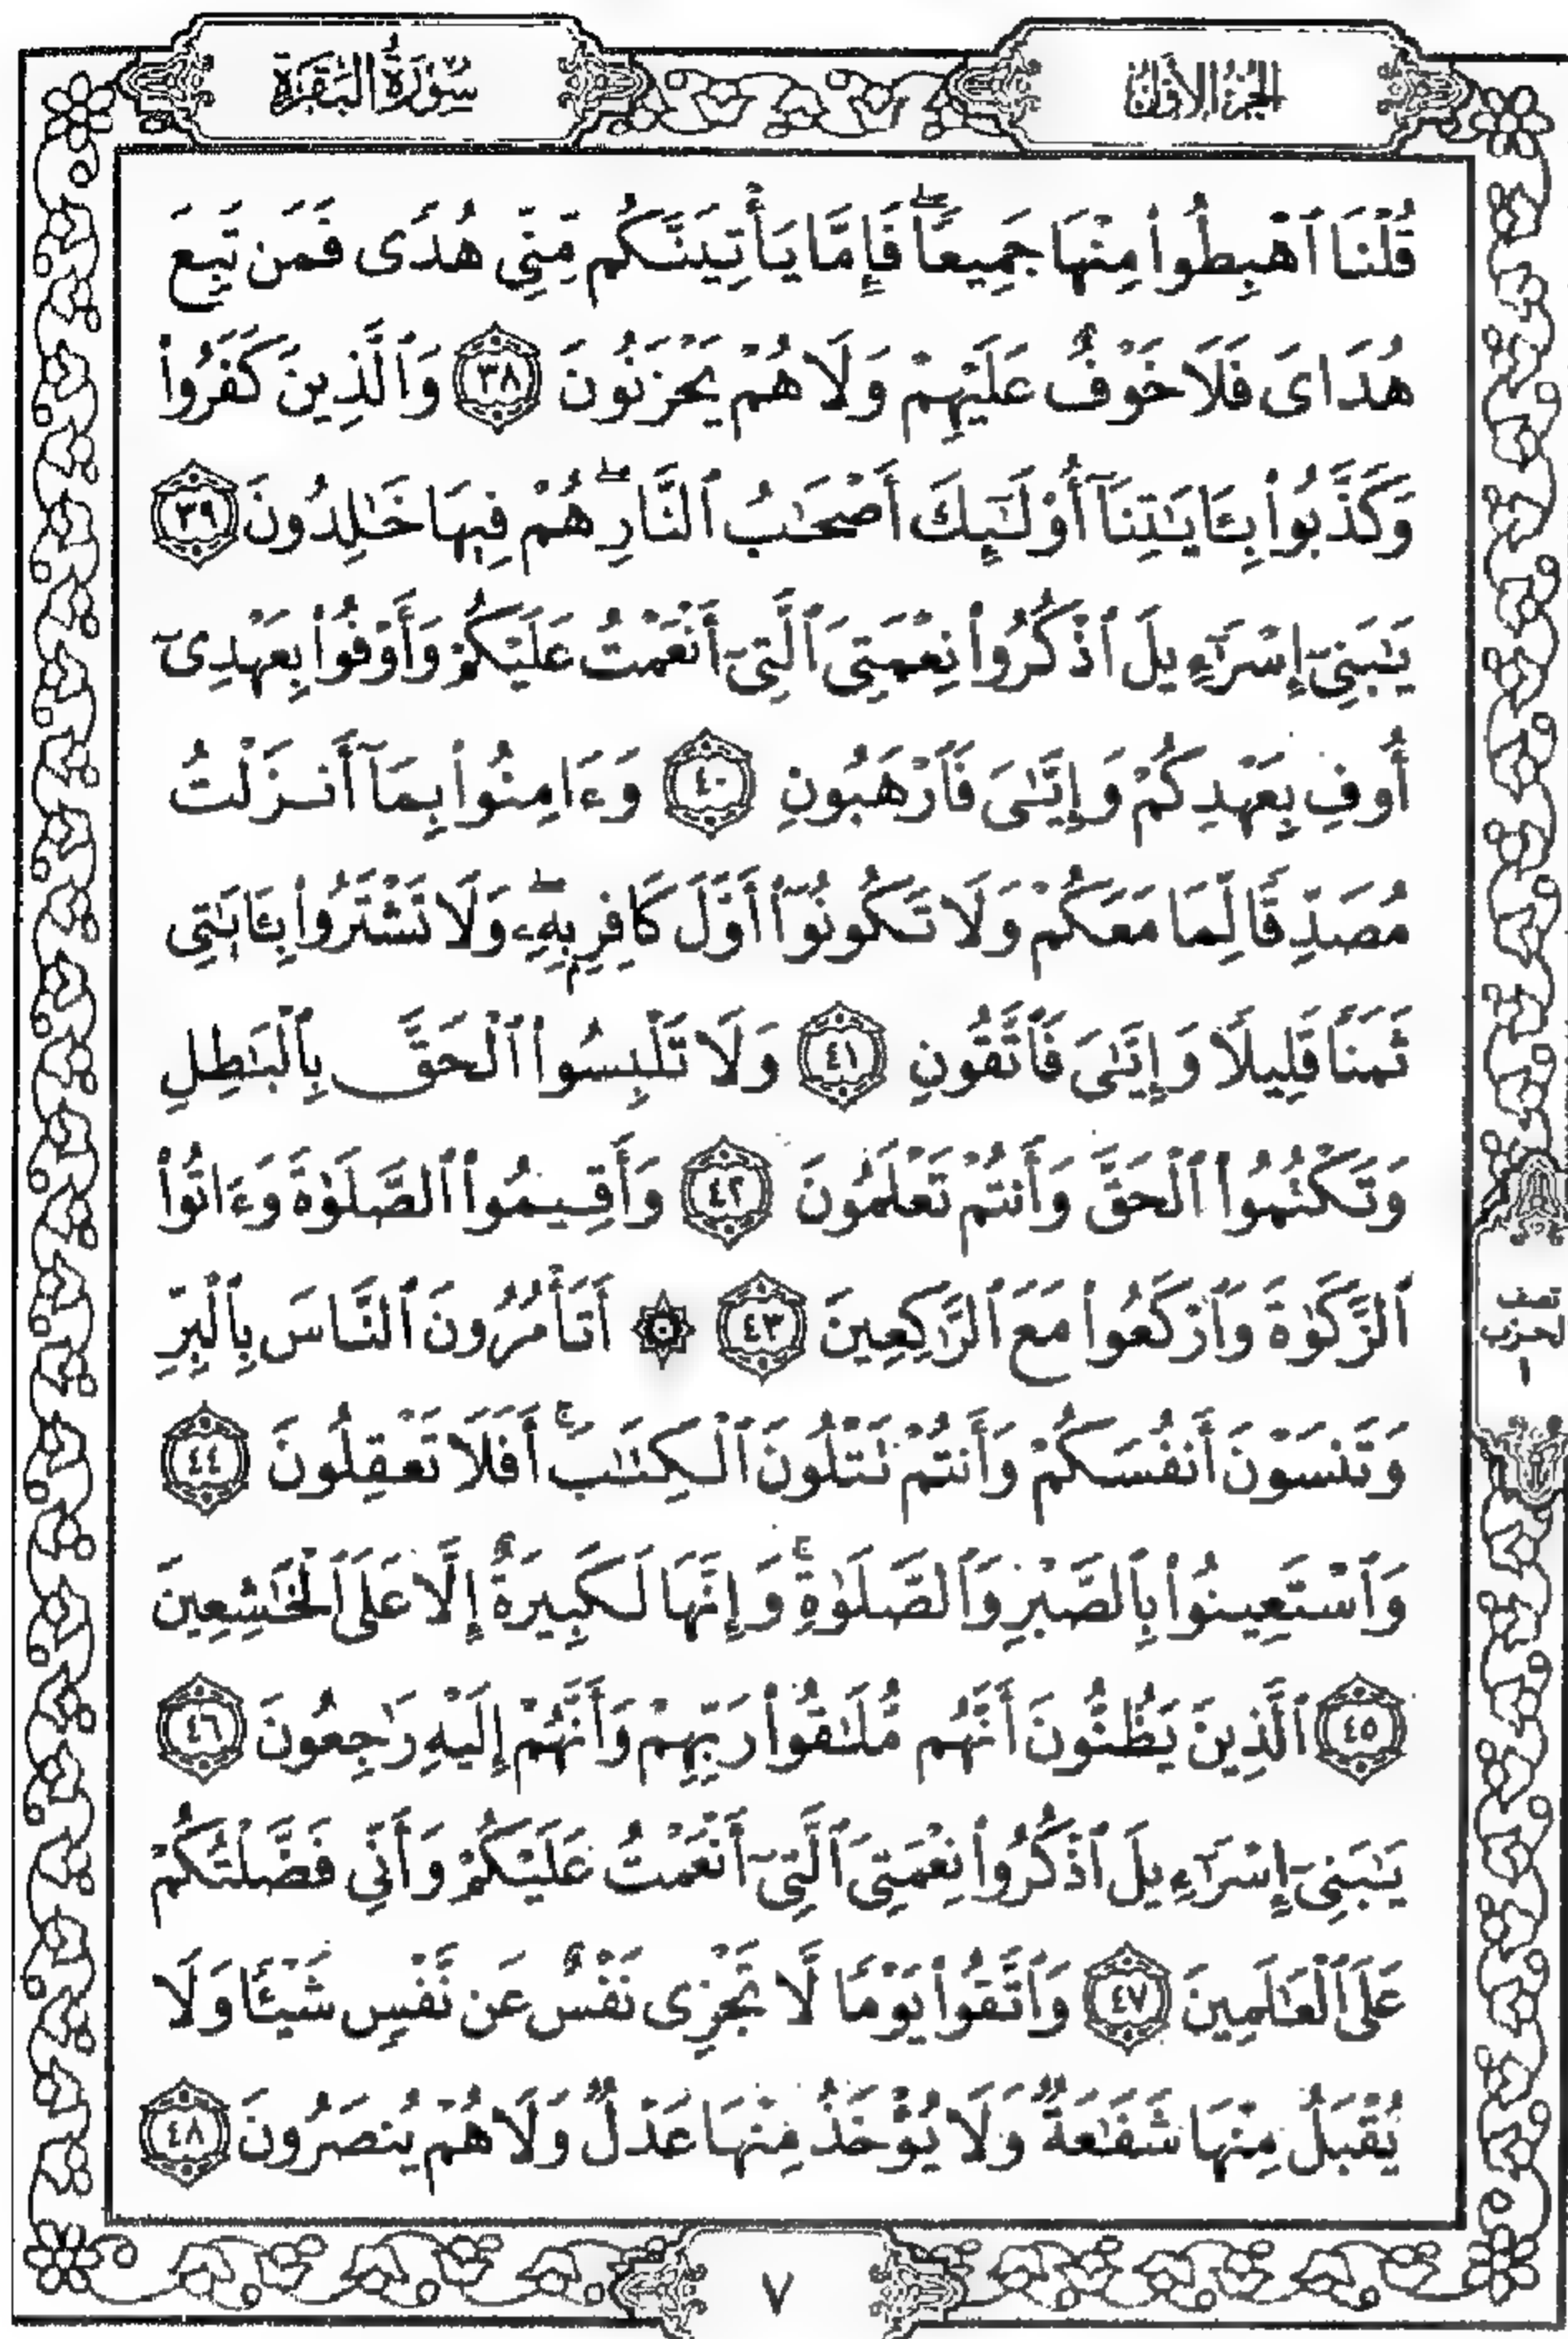 الجزء الأول
سُورَةُ البَقَرَةِ
قُلْنَا ٱهْبِطُوا۟ مِنْهَا جَمِيعًا ۖ فَإِمَّا يَأْتِيَنَّكُم مِّنِّى هُدًى فَمَن تَبِعَ
هُدَاىَ فَلَا خَوْفٌ عَلَيْهِمْ وَلَا هُمْ يَحْزَنُونَ ٣٨ وَٱلَّذِينَ كَفَرُوا۟
وَكَذَّبُوا۟ بِـَٔايَـٰتِنَآ أُو۟لَـٰٓئِكَ أَصْحَـٰبُ ٱلنَّارِ ۖ هُمْ فِيهَا خَـٰلِدُونَ ٣٩
يَـٰبَنِىٓ إِسْرَٰٓءِيلَ ٱذْكُرُوا۟ نِعْمَتِىَ ٱلَّتِىٓ أَنْعَمْتُ عَلَيْكُمْ وَأَوْفُوا۟ بِعَهْدِىٓ
أُوفِ بِعَهْدِكُمْ وَإِيَّـٰىَ فَٱرْهَبُونِ ٤٠ وَءَامِنُوا۟ بِمَآ أَنزَلْتُ
مُصَدِّقًا لِّمَا مَعَكُمْ وَلَا تَكُونُوٓا۟ أَوَّلَ كَافِرٍۭ بِهِۦ ۖ وَلَا تَشْتَرُوا۟ بِـَٔايَـٰتِى
ثَمَنًا قَلِيلًا وَإِيَّـٰىَ فَٱتَّقُونِ ٤١ وَلَا تَلْبِسُوا۟ ٱلْحَقَّ بِٱلْبَـٰطِلِ
وَتَكْتُمُوا۟ ٱلْحَقَّ وَأَنتُمْ تَعْلَمُونَ ٤٢ وَأَقِيمُوا۟ ٱلصَّلَوٰةَ وَءَاتُوا۟
ٱلزَّكَوٰةَ وَٱرْكَعُوا۟ مَعَ ٱلرَّٰكِعِينَ ٤٣ ۞ أَتَأْمُرُونَ ٱلنَّاسَ بِٱلْبِرِّ
نصف
الحزب
١
وَتَنسَوْنَ أَنفُسَكُمْ وَأَنتُمْ تَتْلُونَ ٱلْكِتَـٰبَ ۚ أَفَلَا تَعْقِلُونَ ٤٤
وَٱسْتَعِينُوا۟ بِٱلصَّبْرِ وَٱلصَّلَوٰةِ ۚ وَإِنَّهَا لَكَبِيرَةٌ إِلَّا عَلَى ٱلْخَـٰشِعِينَ
٤٥ ٱلَّذِينَ يَظُنُّونَ أَنَّهُم مُّلَـٰقُوا۟ رَبِّهِمْ وَأَنَّهُمْ إِلَيْهِ رَٰجِعُونَ ٤٦
يَـٰبَنِىٓ إِسْرَٰٓءِيلَ ٱذْكُرُوا۟ نِعْمَتِىَ ٱلَّتِىٓ أَنْعَمْتُ عَلَيْكُمْ وَأَنِّى فَضَّلْتُكُمْ
عَلَى ٱلْعَـٰلَمِينَ ٤٧ وَٱتَّقُوا۟ يَوْمًا لَّا تَجْزِى نَفْسٌ عَن نَّفْسٍ شَيْـًٔا وَلَا
يُقْبَلُ مِنْهَا شَفَـٰعَةٌ وَلَا يُؤْخَذُ مِنْهَا عَدْلٌ وَلَا هُمْ يُنصَرُونَ ٤٨
٧